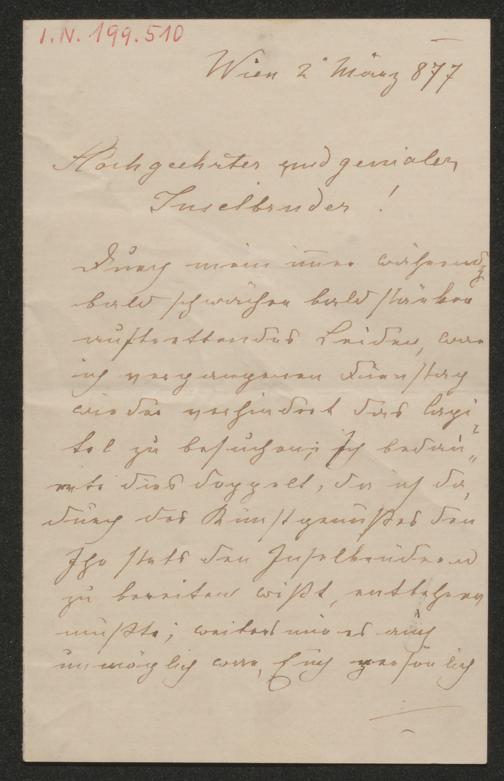 I.N. 199.510
Wien 2 März 877
Hochgeehrter und genialer
Inselbruder!
Durch mein immer während,
bald schwächer bald stärker
auftrettendes Leiden, war
ich vergangenen Dienstag
wieder verhindert das Capi
tel zu besuchen; Ich bedau„
erte dies doppelt, da ich da„
durch des Kunstgenußes den
Ihr stets den Inselbrüdern
zu bereiten wißt, entbehren
mußte; weiters mir es auch
unmöglich war, Euch persönlich